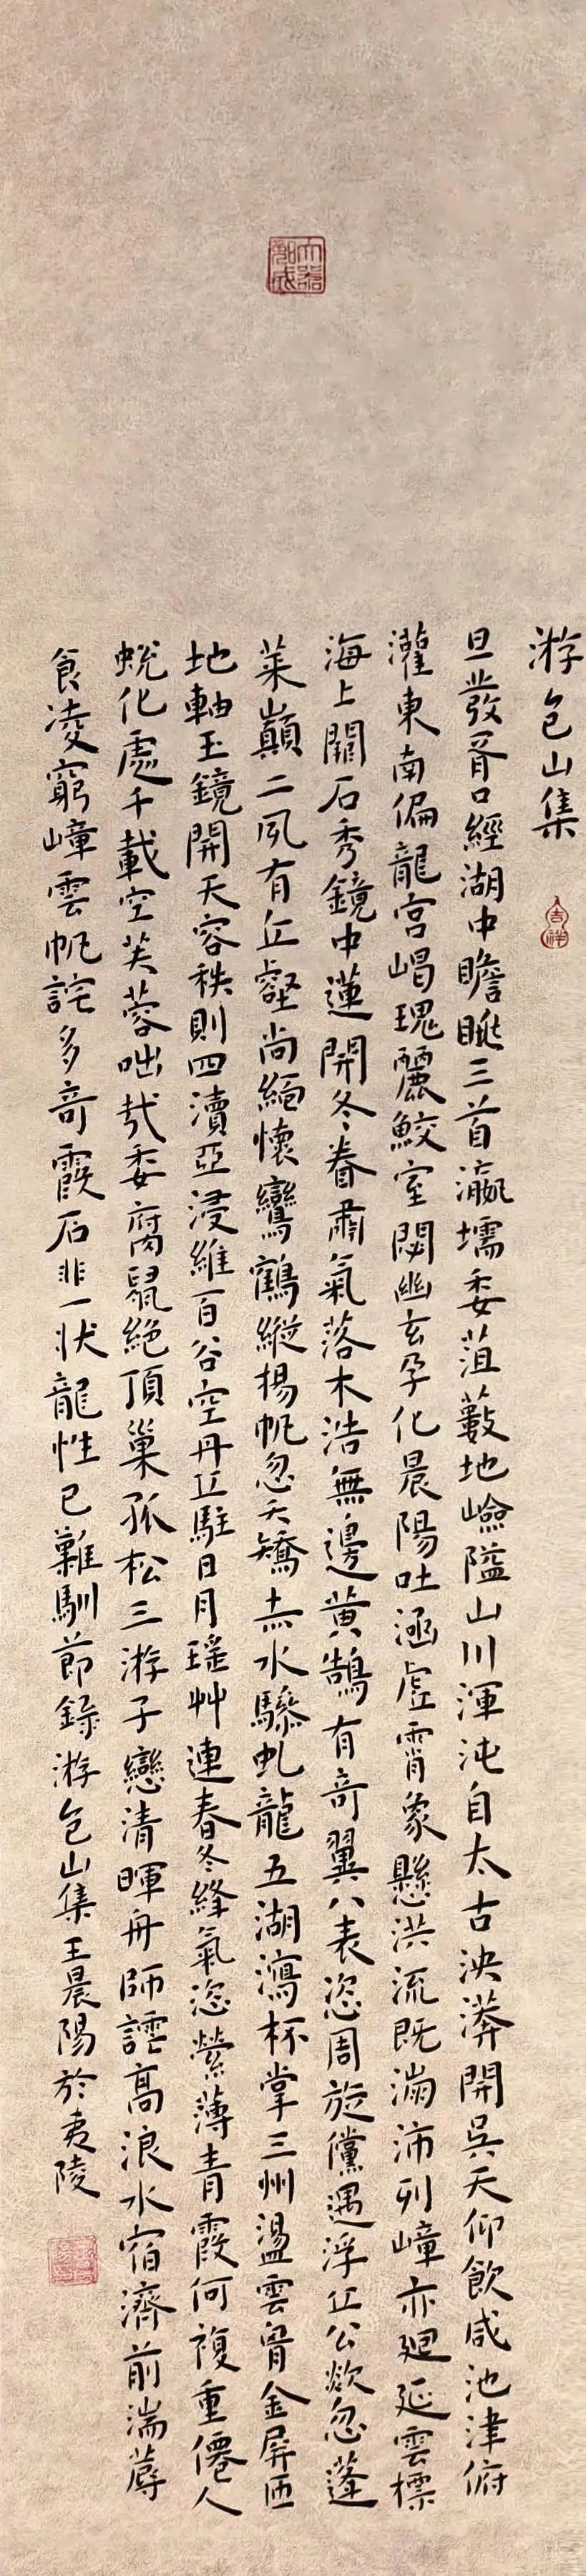 游包山集
吉祥
旦發胥口經湖中瞻眺三首瀛壖委菹藪地嶮隘山川渾沌自太古泱漭開吳天仰飲咸池津俯
灌東南偏龍宮嵑瑰麗鮫室閟幽玄孕化晨陽吐涵虛霄象懸洪流既滿沛列嶂亦迴延雲標
海上闢石秀鏡中蓮開冬眷肅氣落木浩無邊黃鵠有奇翼八表恣周旋儻遇浮丘公欻忽蓬
萊巔二夙有丘壑尚緬懷鸞鶴縱揚帆忽夭矯赤水驂虬龍五湖瀉杯掌三州盪雲胷金屏匝
地軸玉鏡開天容秩則四瀆亞浸維百谷空丹丘駐日月瑤艸連春冬絳氣恣縈薄青霞何複重僊人
蛻化處千載空芙蓉咄哉委腐鼠絕頂巢孤松三游子戀清暉舟師譚高浪水宿濟前湍蓐
食凌窮嶂雲帆詫多奇霞石非一狀龍性已難馴節錄游包山集王晨陽於夷陵